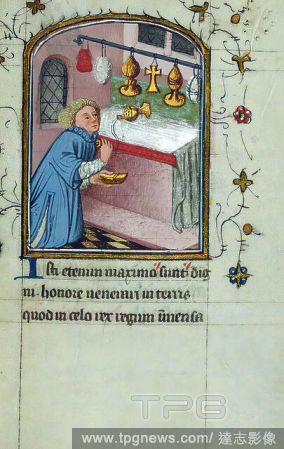 Isti etenim maximo sunt dig
ni honore venerari in terris
quod in celo rex regum
TPG
www.tpgnews.com/達志影像